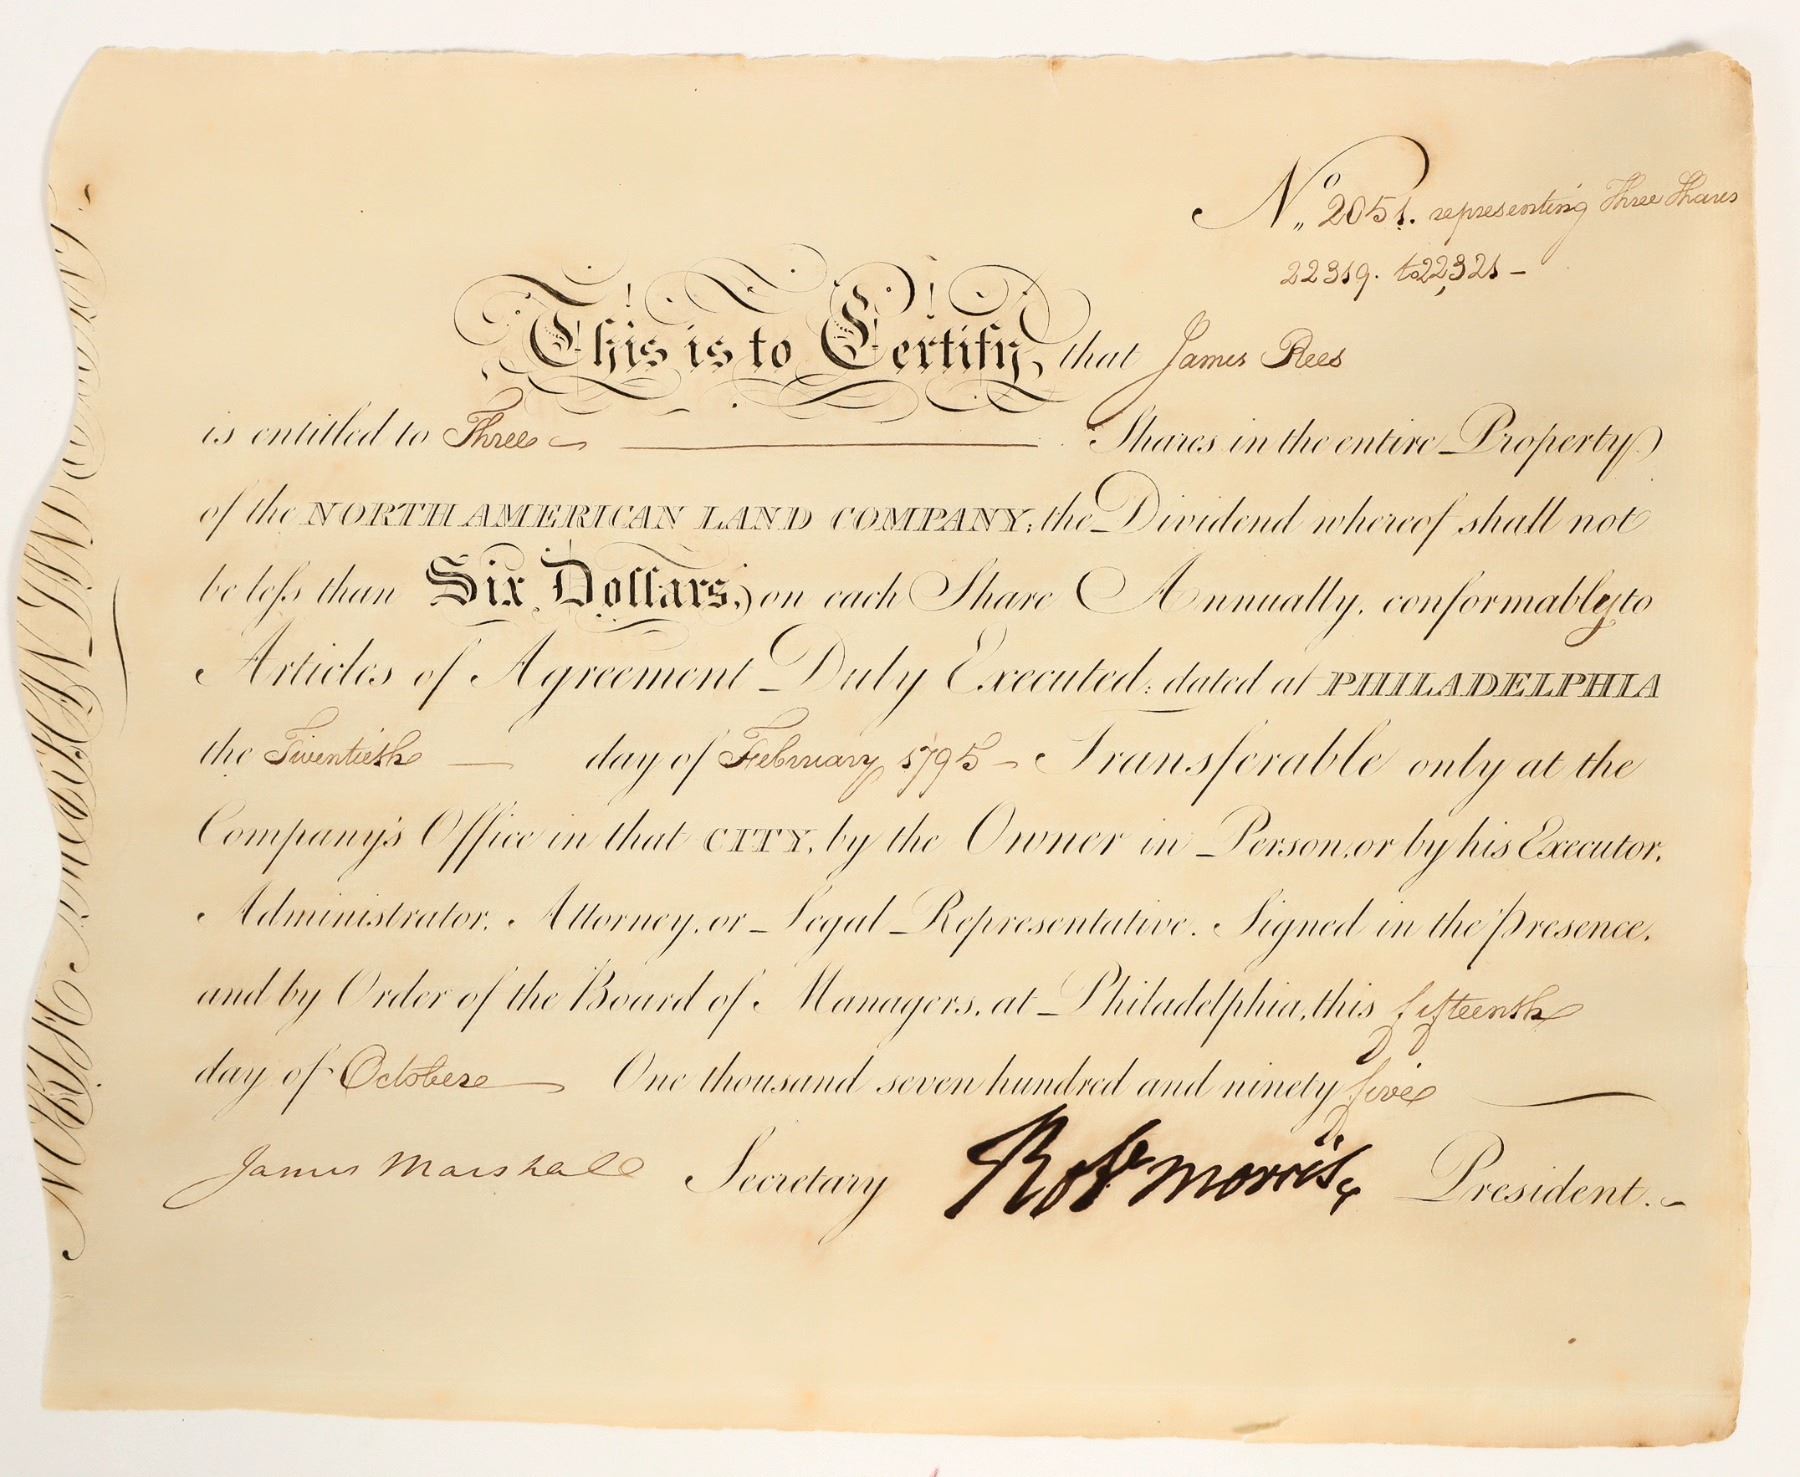 No. 2051. representing Three Shares
22319. to 22321 –
This is to Certify, that James Rees
is entitled to Three Shares in the entire Property
of the NORTH AMERICAN LAND COMPANY; the Dividend whereof shall not
be less than Six Dollars, on each Share Annually, conformably to
Articles of Agreement Duly Executed; dated at PHILADELPHIA
the Twentieth — day of February 1795 – Transferable only at the
Company's Office in that CITY, by the Owner in Person, or by his Executor,
Administrator, Attorney, or Legal Representative. Signed in the presence,
and by Order of the Board of Managers, at Philadelphia, this fifteenth
day of October — One thousand seven hundred and ninety five
James Marshall Secretary Robt Morris President.